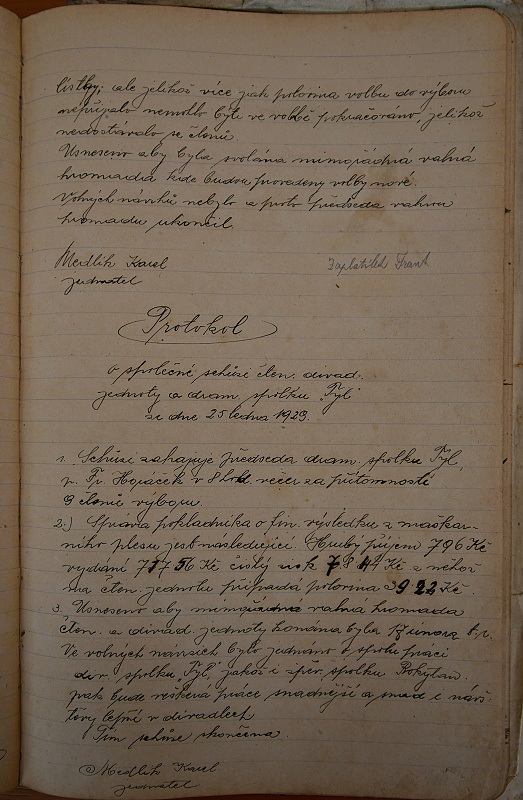 lístky; ale jelikož více jak polovina volbu do výboru
nepřijalo nemohlo býti ve volbě pokračováno, jelikož
nedostávalo se členů.
Usneseno aby byla svolána mimořádná valná
hromada kde budou provedeny volby nové.
Volných návrhů nebylo a proto předseda valnou
hromadu ukončil.
Medlík Karel
jednatel
Zaplatílek Frant
Protokol
o společné schůzi čten. divad.
jednoty a dram. spolku "Tyl"
ze dne 25 ledna 1923.
1. Schůzi zahajuje předseda dram. spolku Tyl,
p. Fr. Hojáček v 8 hod. večer za přítomnosti
9 členů výboru.
2.) Zpráva pokladníka o fin. výsledku z maškar-
ního plesu jest následující. Hrubý příjem 796 Kč
vydání 717 56 Kč čistý zisk 78 44 Kč z něhož
na čten. jednotu připadá polovina 39 22 Kč.
3. Usneseno aby mimořádná valná hromada
čten. a divad. jednoty konána byla 17 února t.r.
Ve volných návrzích bylo jednáno o spolupráci
div. spolku "Tyl" jakož i zpěv. spolku Rokytan.
pak bude veškerá práce snadnější a snad i návš-
těvy lepší v divadlech
Tím schůze skončena.
Medlík Karel
jednatel